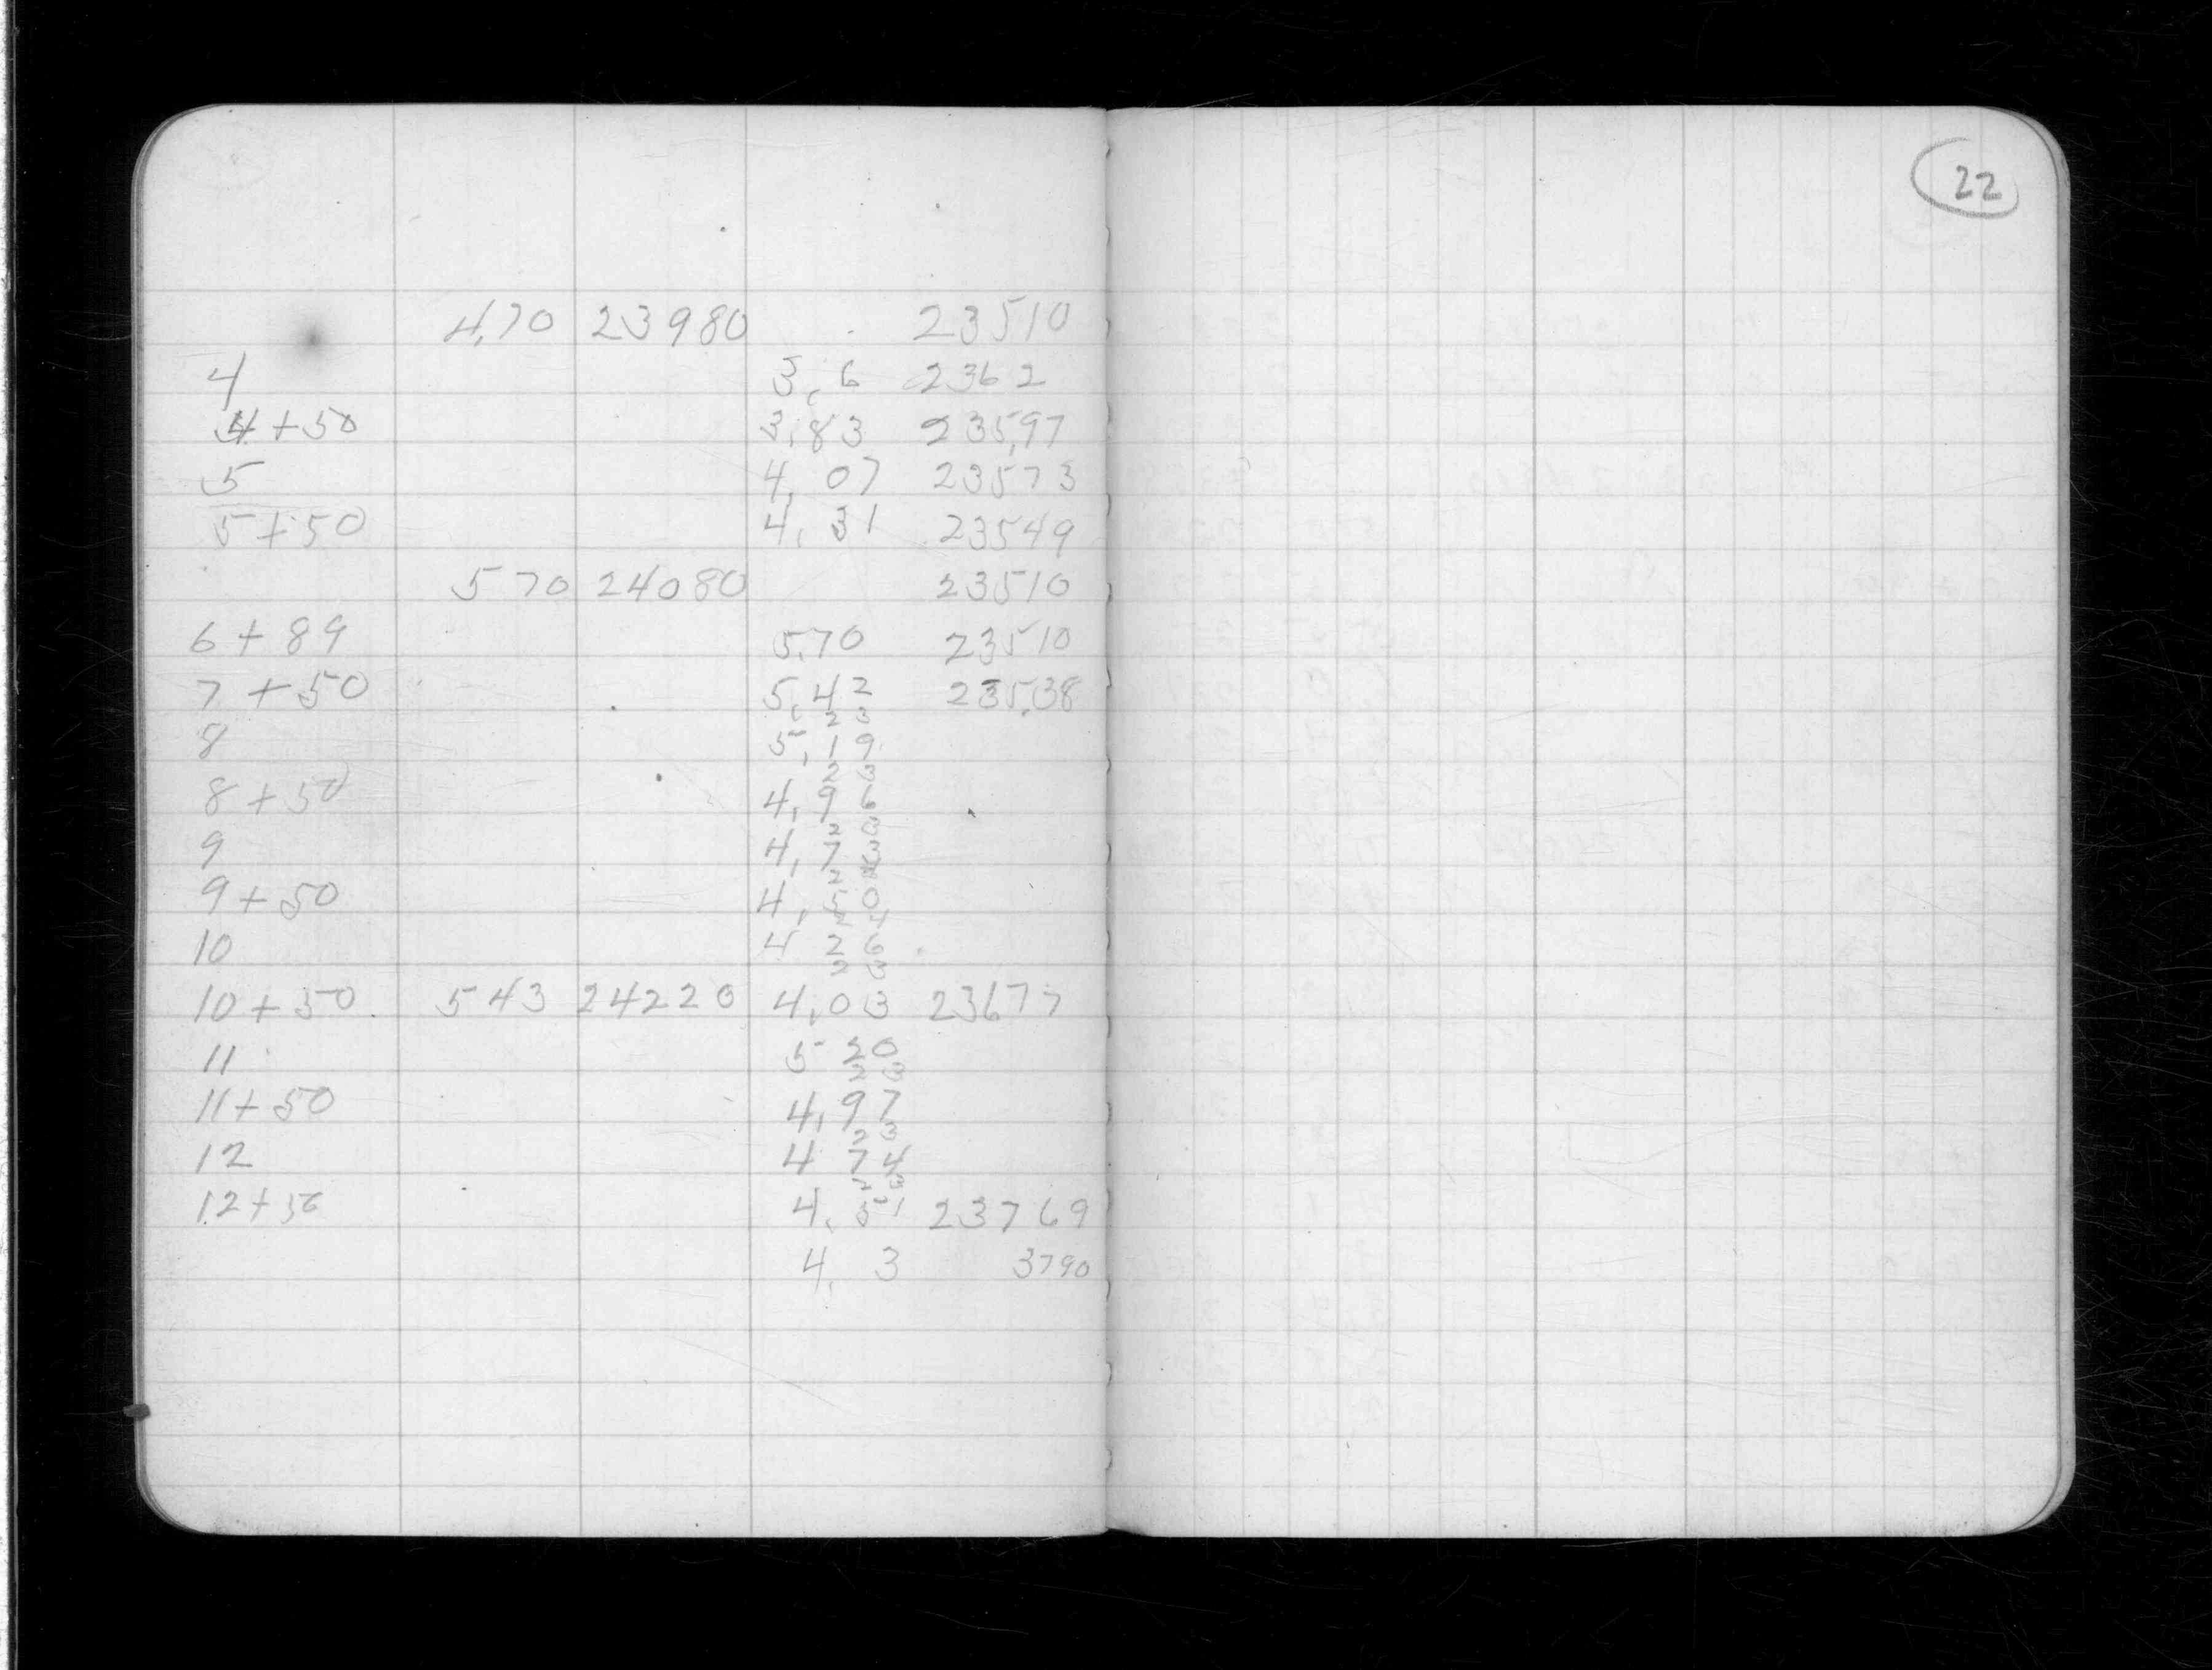 4,70 23980 23510
4 3,6 2362
4+50 3,83 235,97
5 4,07 23573
5+50 4,31 23549
570 24080 23510
6+89 5,70 23510
7+50 5,42 235,38
23
8 5,19
23
8+50 4,96
23
9 4,73
23
9+50 4,50
24
10 4 26
23
10+50 543 24220 4,03 23677
11 5 20
23
11+50 4,97
23
12 4 74
23
12+50 4,51 23769
4,3 3790
22